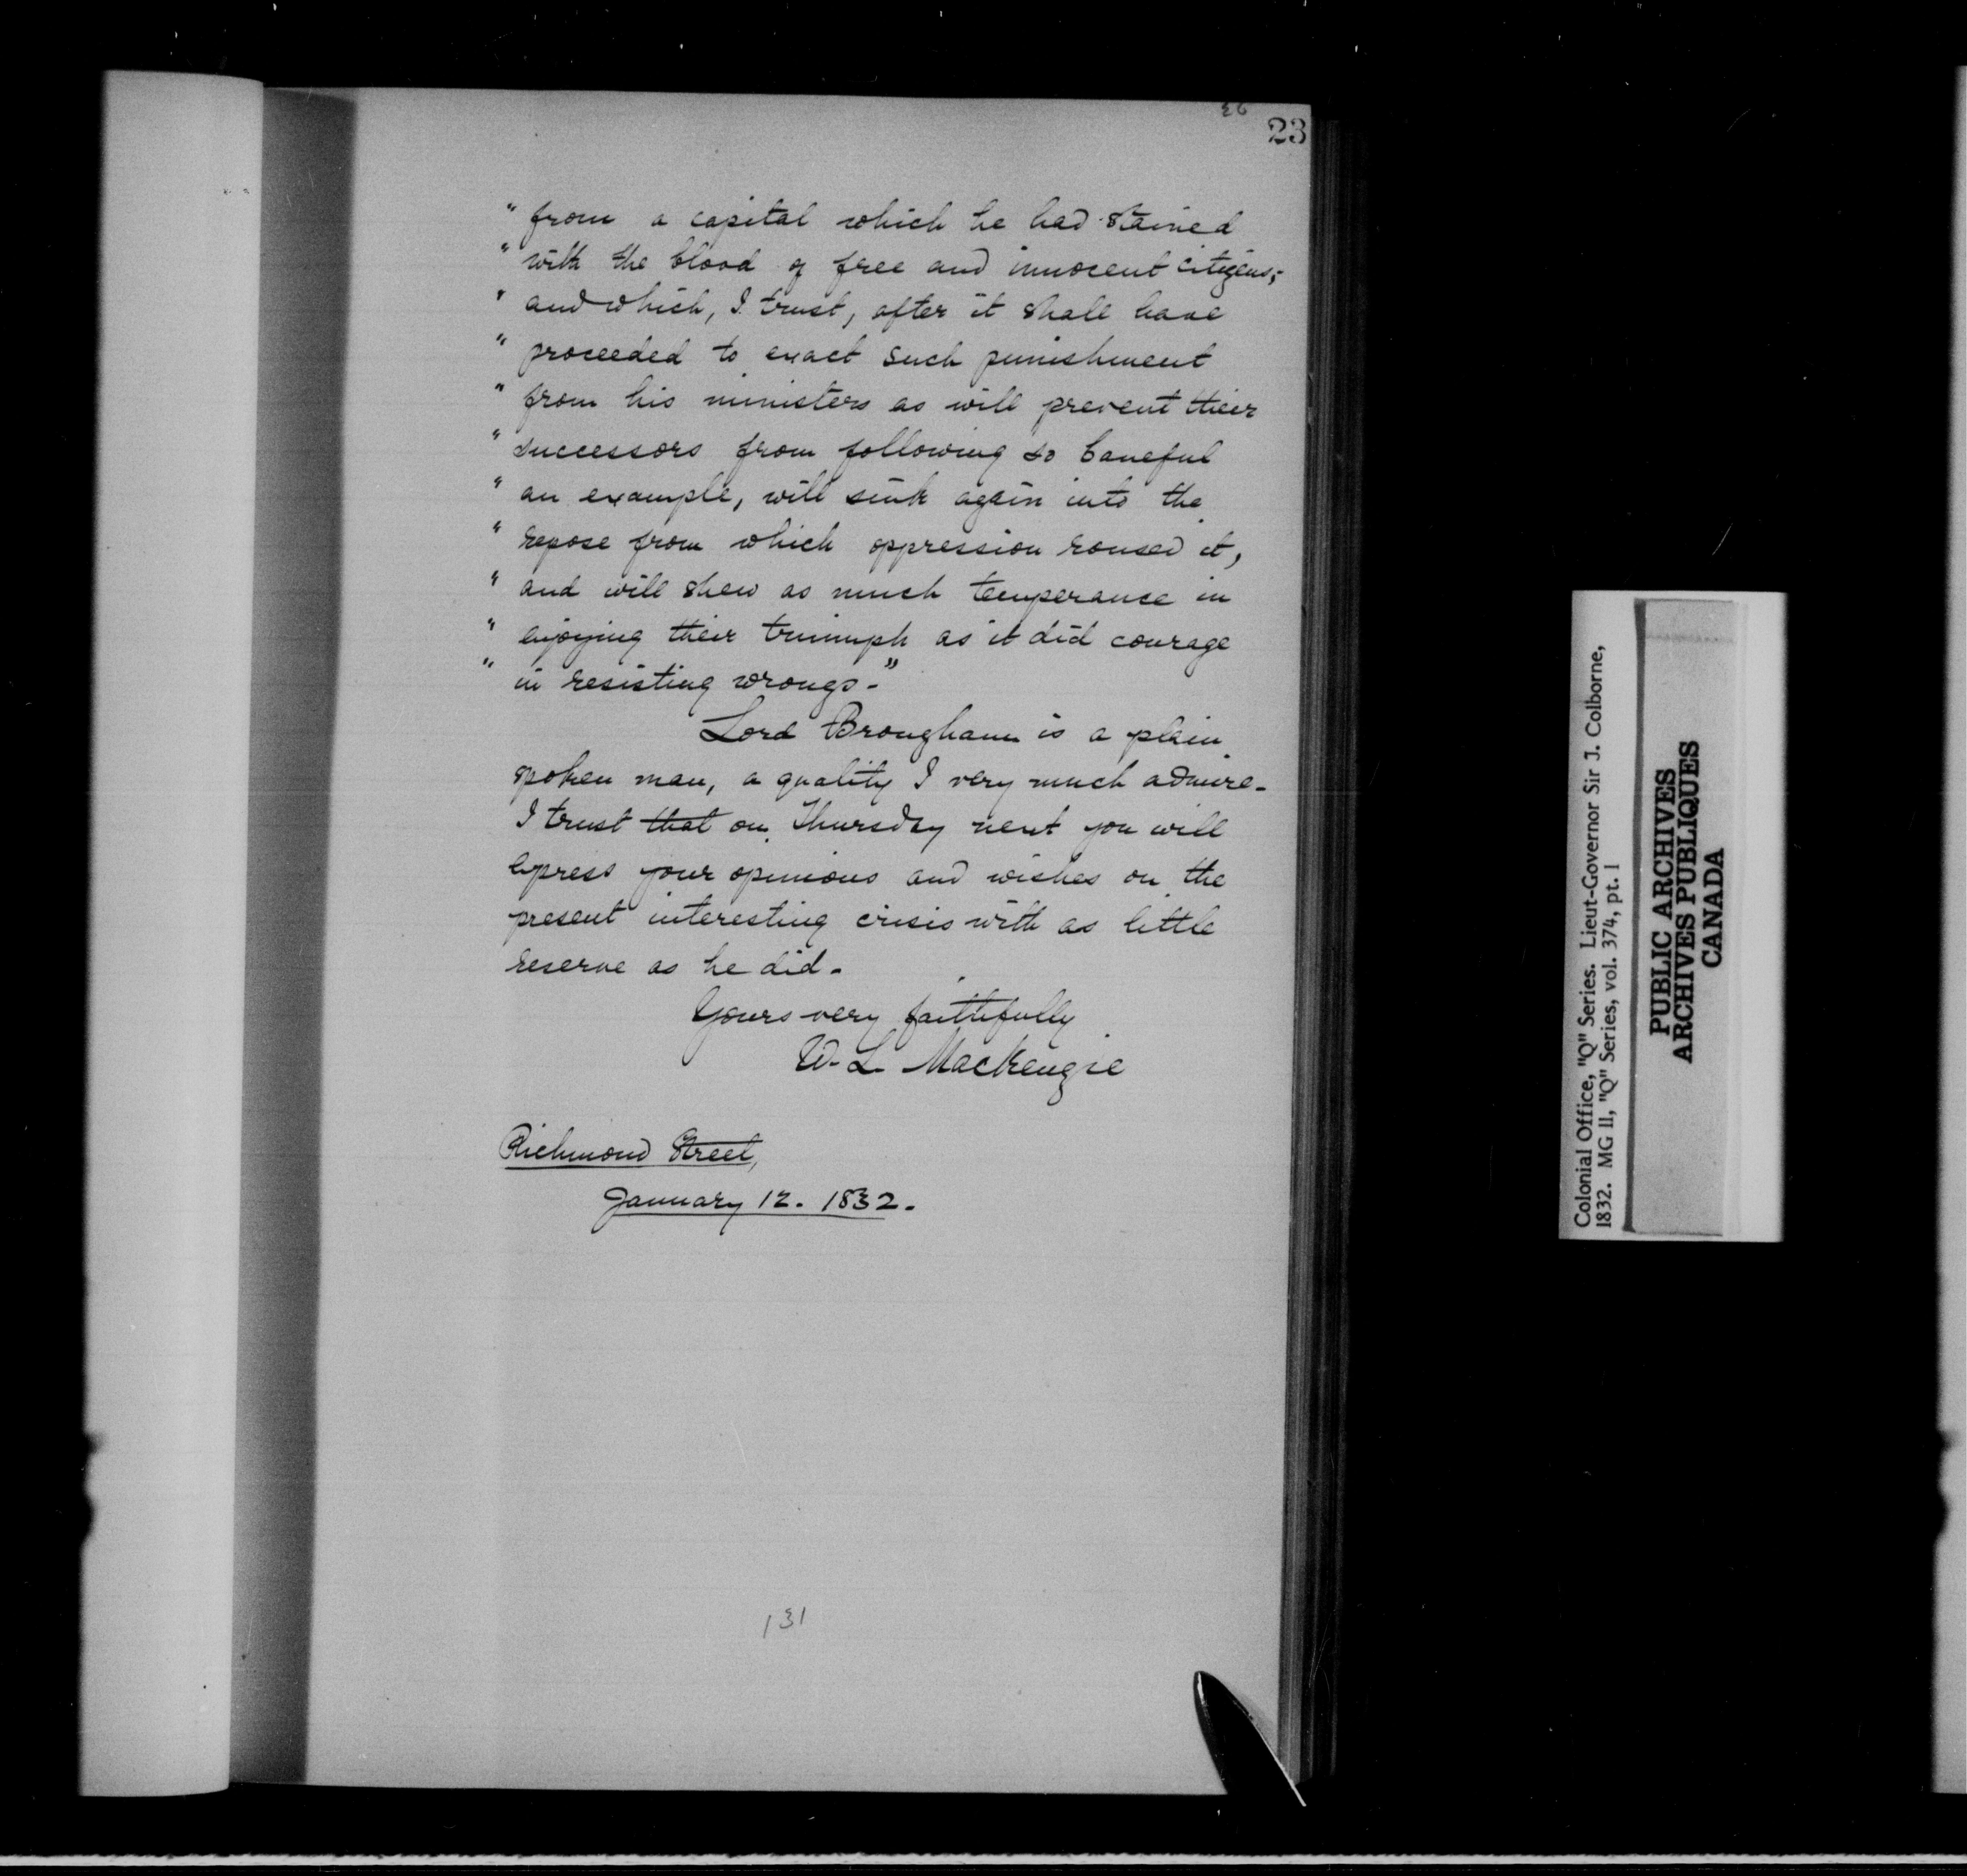 23
" from a capital which he had stained
" with the blood of free and innocent citizens;
" and which, I trust, after it shall have
" proceeded to exact such punishment
" from his ministers as will prevent their
" successors from following so baneful
" an example, will sink again into the
" repose from which oppression roused it,
" and will shew as much temperance in
" enjoying their triumph as it did courage
" in resisting wrongs-"
Lord Brougham is a plain
spoken man, a quality I very much admire-
I trust that on Thursday next you will
express your opinions and wishes on the
present interesting crisis with as little
reserve as he did-
Yours very faithfully
W. L. MacKenzie
Richmond Street,
January 12. 1832.
131
Colonial Office, "Q" Series. Lieut-Governor Sir J. Colborne,
1832. MG 11, "Q" Series, vol. 374, pt. 1
PUBLIC ARCHIVES
ARCHIVES PUBLIQUES
CANADA